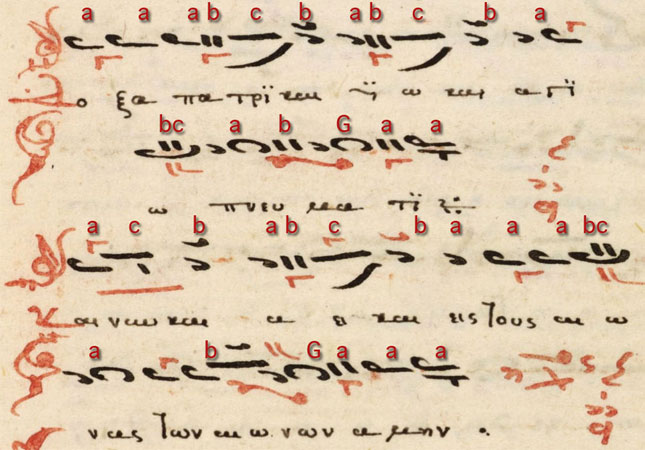 a a a b c b a b c b a
ο ξα πα τρϊ και ϋϊ ω και α γϊ
bc a b G a a
ω πνευ μα τϊ
a c b a b c b a a a bc
αι νυν και α ει και εις τους αι ω
a b G a a a
νας των αι ω νων α μην .